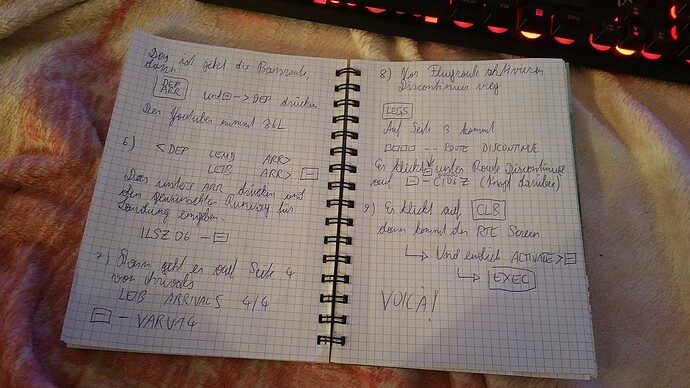 Das ist jetzt die Basisroute,
dann
DEP
ARR
und → DEP drücken
Der Youtuber nimmt 36L
6) <DEP LEMD ARR>
LEIB ARR>
Das untere ARR drücken und
den gewünschten Runway für
Landung eingeben.
ILSZ 06 -
7) Dann geht es auf Seite 4
von Arrivals
LEIB ARRIVALS 4/4
- VARU14
8) Vor Flugroute aktivieren
Discontinues weg
LEGS
Auf Seite 3 kommt
□□□□ -- ROUTE DISCONTINUE
Er klickt unter Route Discontinue
auf - CI06Z (Knopf darüber)
9) Er klickt auf CLB
dann kommt der RTE Screen
Und endlich ACTIVATE>
EXEC
VOILÀ!